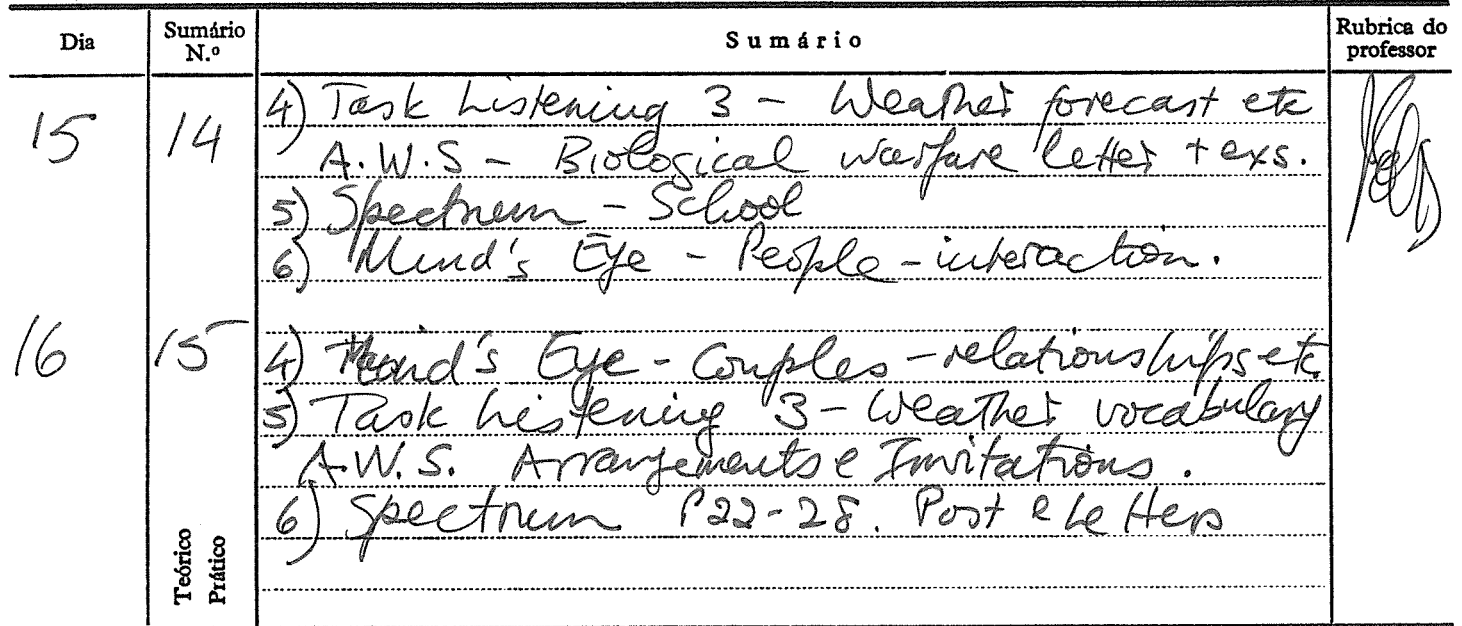 Dia Sumário N.º Sumário Rubrica do professor
15 14 4) Task Listening 3 - Weather forecast etc
A.W.S - Biological warfare letter + exs.
5) Spectrum - School
6) Mind's Eye - People - interaction.
16 15 4) Mind's Eye - Couples - relationships etc
5) Task Listening 3 - Weather vocabulary
A.W.S. Arrangements e Invitations.
6) Spectrum P22-28. Post e Letters
Teórico
Prático